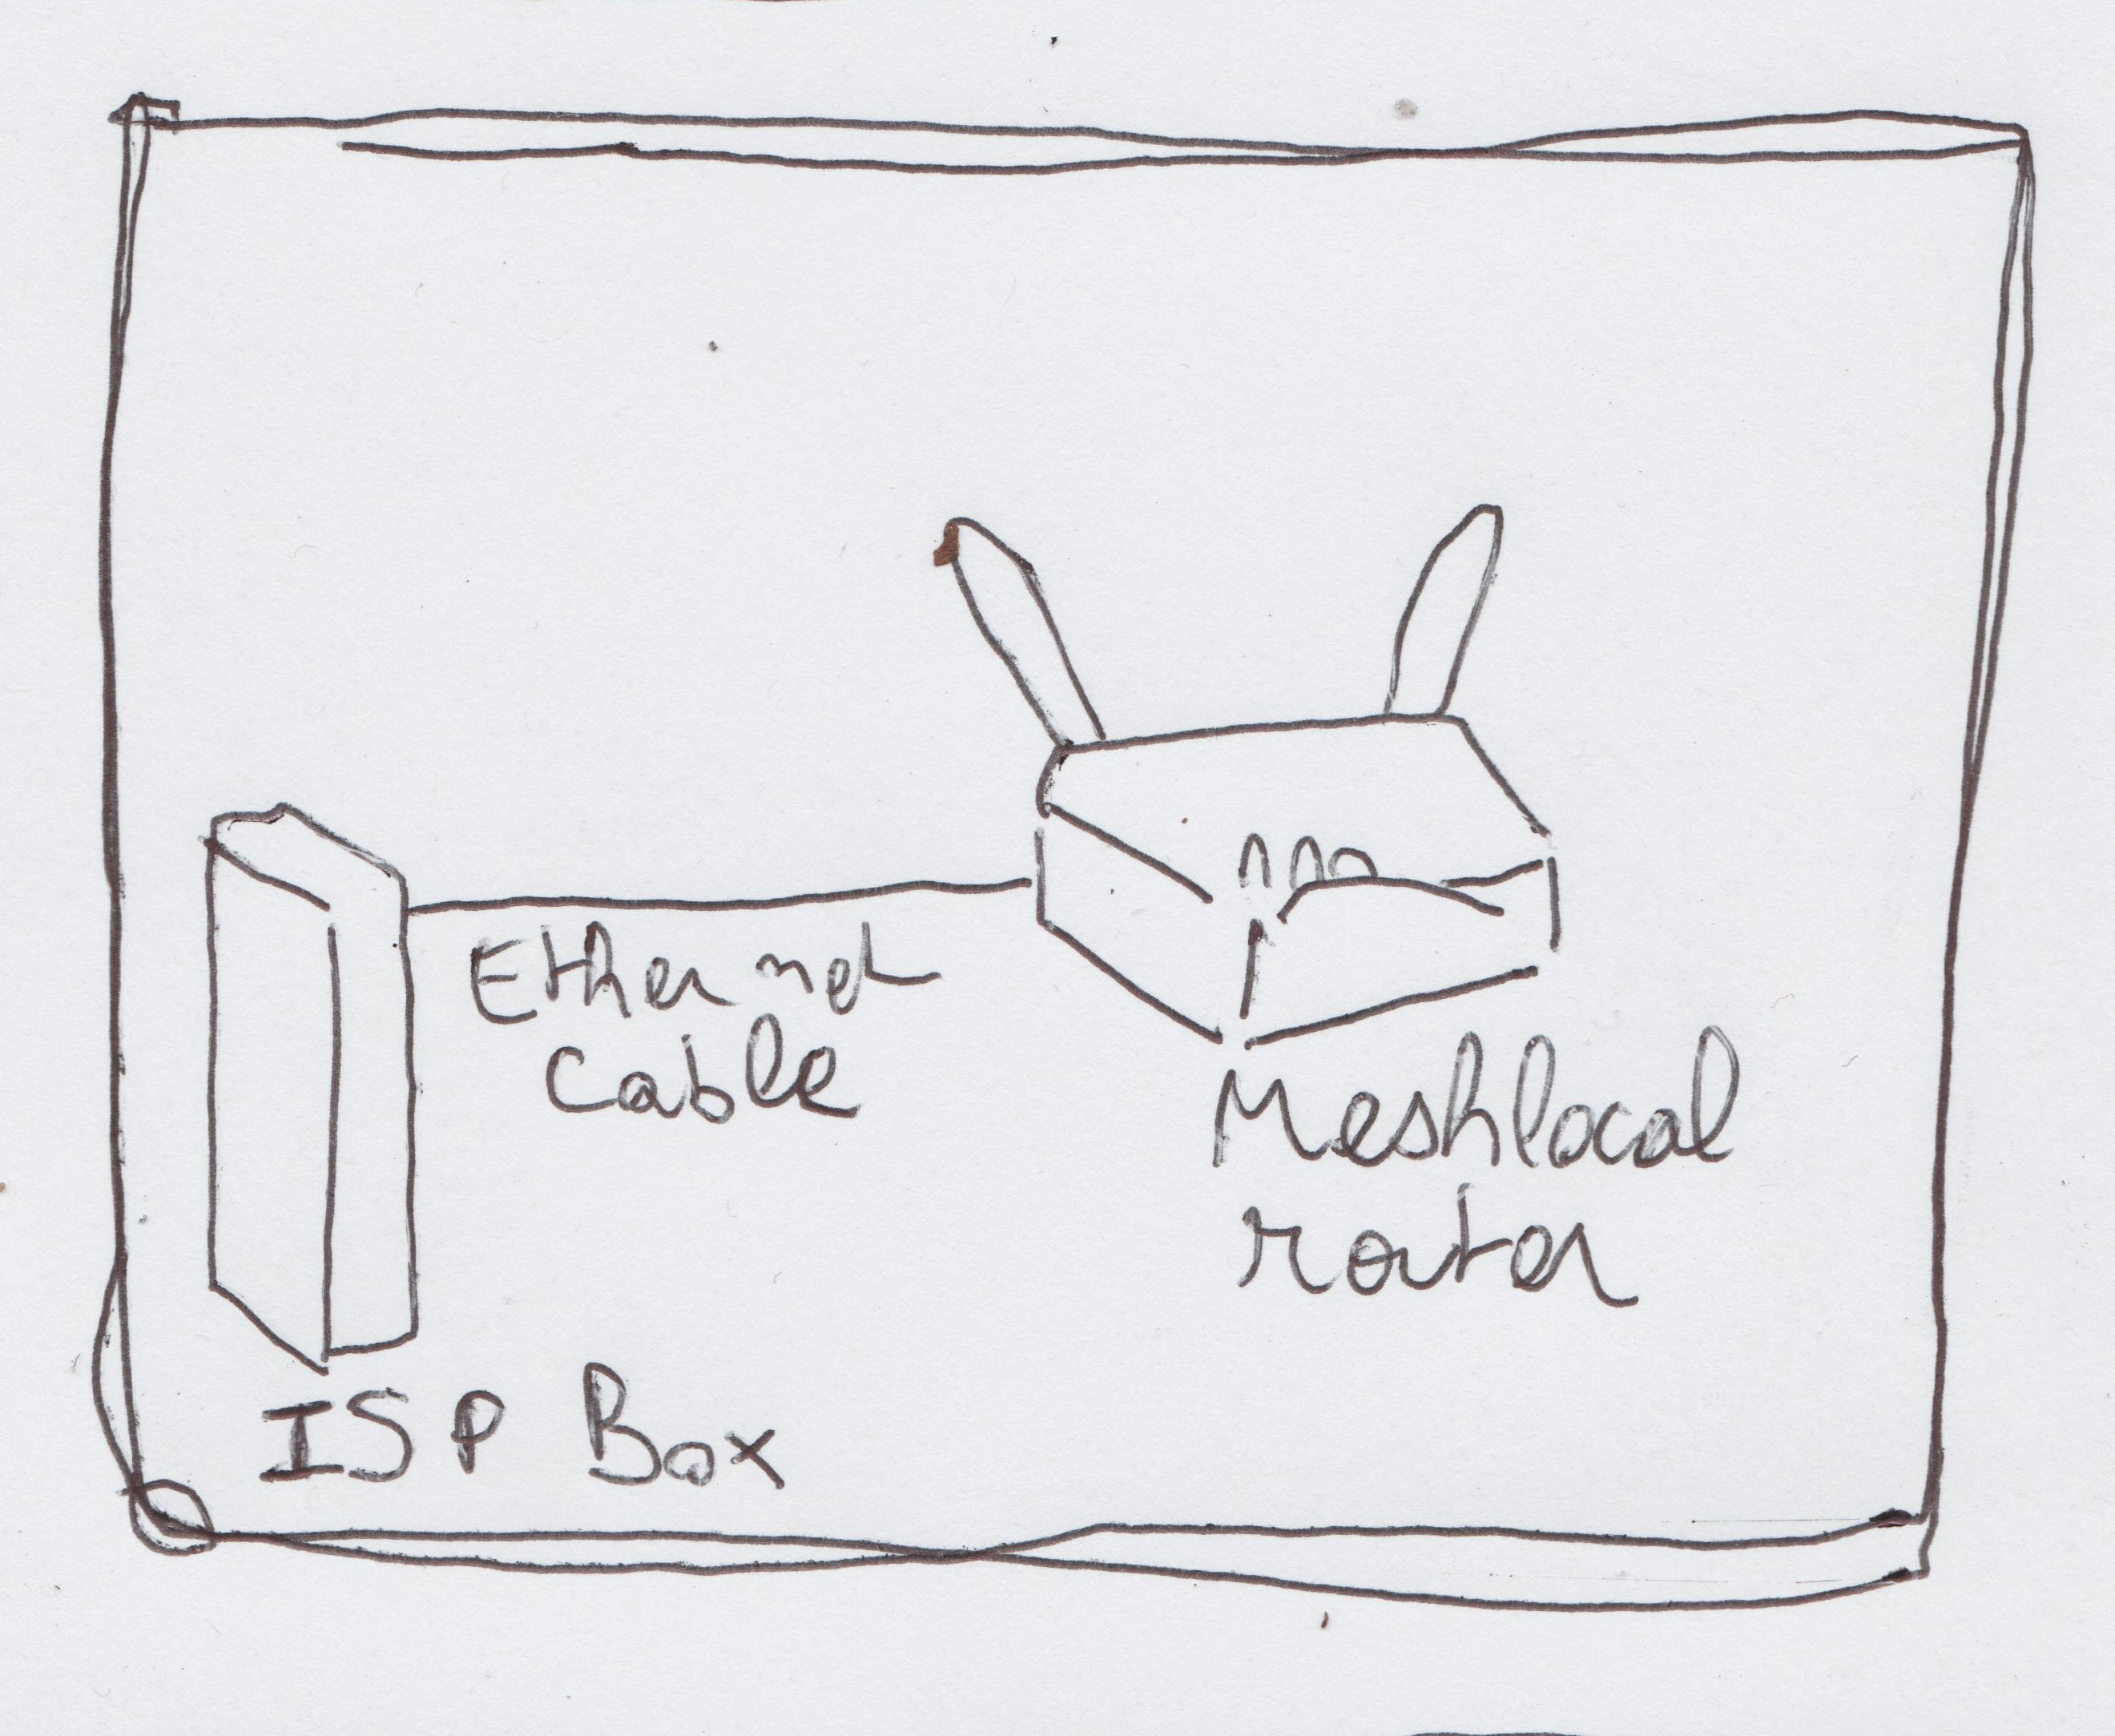 Ethernet
Cable
Meshlocal
router
ISP Box